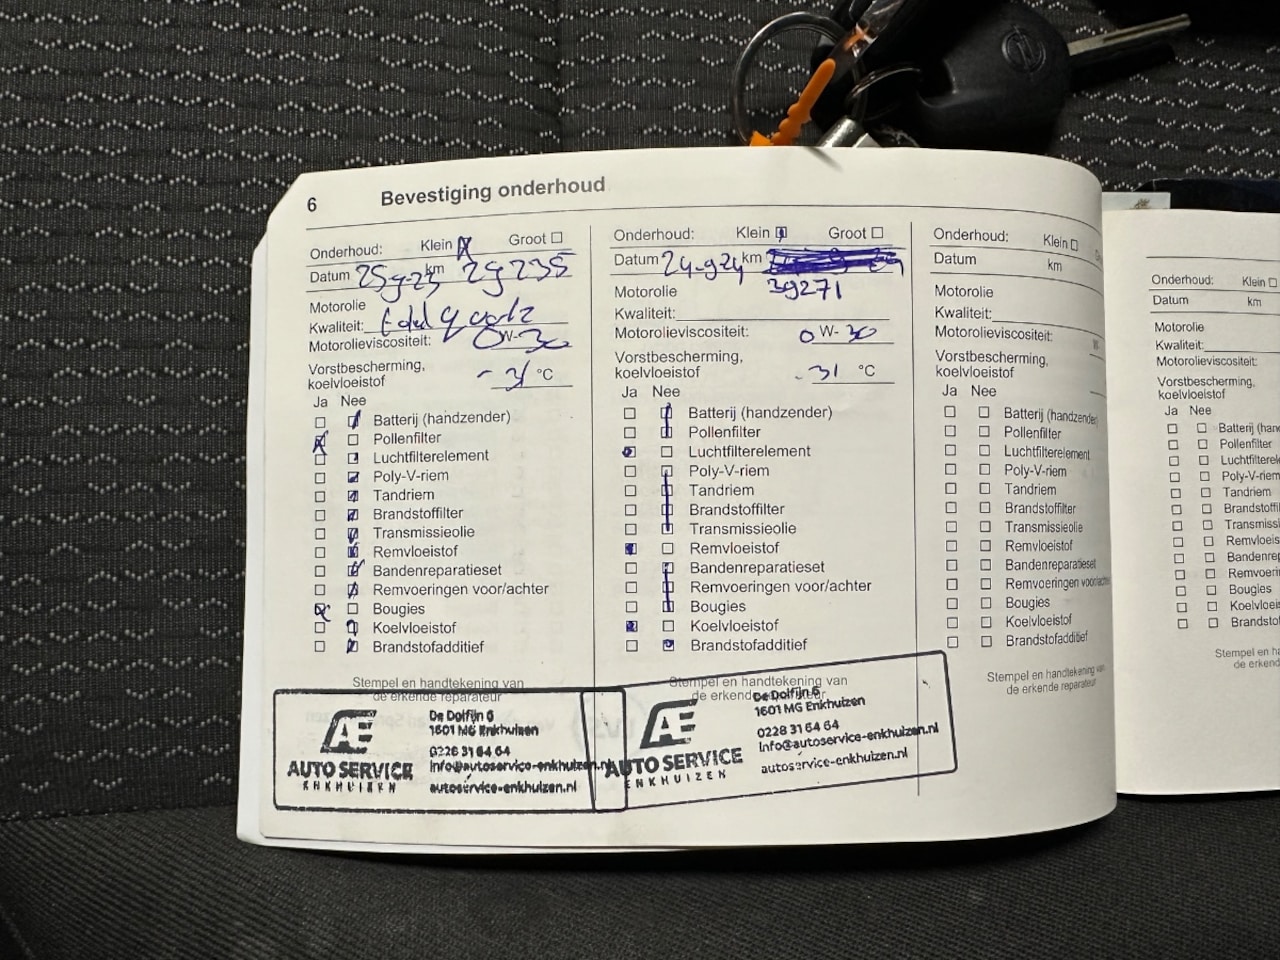 6 Bevestiging onderhoud
Onderhoud: Klein Groot
Datum 25-9-23 km 29235
Motorolie
Kwaliteit:
Motorolieviscositeit: 0 W-30
Vorstbescherming,
koelvloeistof -31 °C
Ja Nee
Batterij (handzender)
Pollenfilter
Luchtfilterelement
Poly-V-riem
Tandriem
Brandstoffilter
Transmissieolie
Remvloeistof
Bandenreparatieset
Remvoeringen voor/achter
Bougies
Koelvloeistof
Brandstofadditief
Stempel en handtekening van
de erkende reparateur
AE
AUTO SERVICE
ENKHUIZEN
De Dolfijn 6
1601 MG Enkhuizen
0228 31 64 64
info@autoservice-enkhuizen.nl
autoservice-enkhuizen.nl
Onderhoud: Klein Groot
Datum 24-9-24 km
39271
Motorolie
Kwaliteit:
Motorolieviscositeit:
0 W-30
Vorstbescherming,
koelvloeistof -31 °C
Ja Nee
Batterij (handzender)
Pollenfilter
Luchtfilterelement
Poly-V-riem
Tandriem
Brandstoffilter
Transmissieolie
Remvloeistof
Bandenreparatieset
Remvoeringen voor/achter
Bougies
Koelvloeistof
Brandstofadditief
Stempel en handtekening van
de erkende reparateur
AE
AUTO SERVICE
ENKHUIZEN
De Dolfijn 6
1601 MG Enkhuizen
0228 31 64 64
info@autoservice-enkhuizen.nl
autoservice-enkhuizen.nl
Onderhoud: Klein
Datum km
Motorolie
Kwaliteit:
Motorolieviscositeit:
Vorstbescherming,
koelvloeistof
Ja Nee
Batterij (handzender
Pollenfilter
Luchtfilterelement
Poly-V-riem
Tandriem
Brandstoffilter
Transmissieolie
Remvloeistof
Bandenreparatieset
Remvoeringen voor/achter
Bougies
Koelvloeistof
Brandstofadditief
Stempel en handtekening van
de erkende reparateur
Onderhoud: Klein
Datum km
Motorolie
Kwaliteit:
Motorolieviscositeit:
Vorstbescherming,
koelvloeistof
Ja Nee
Batterij (han
Pollenfilter
Luchtfilterele
Poly-V-riem
Tandriem
Brandstoffil
Transmissi
Remvloeis
Bandenrep
Remvoerin
Bougies
Koelvloei
Brandsto
Stempel en ha
de erkend